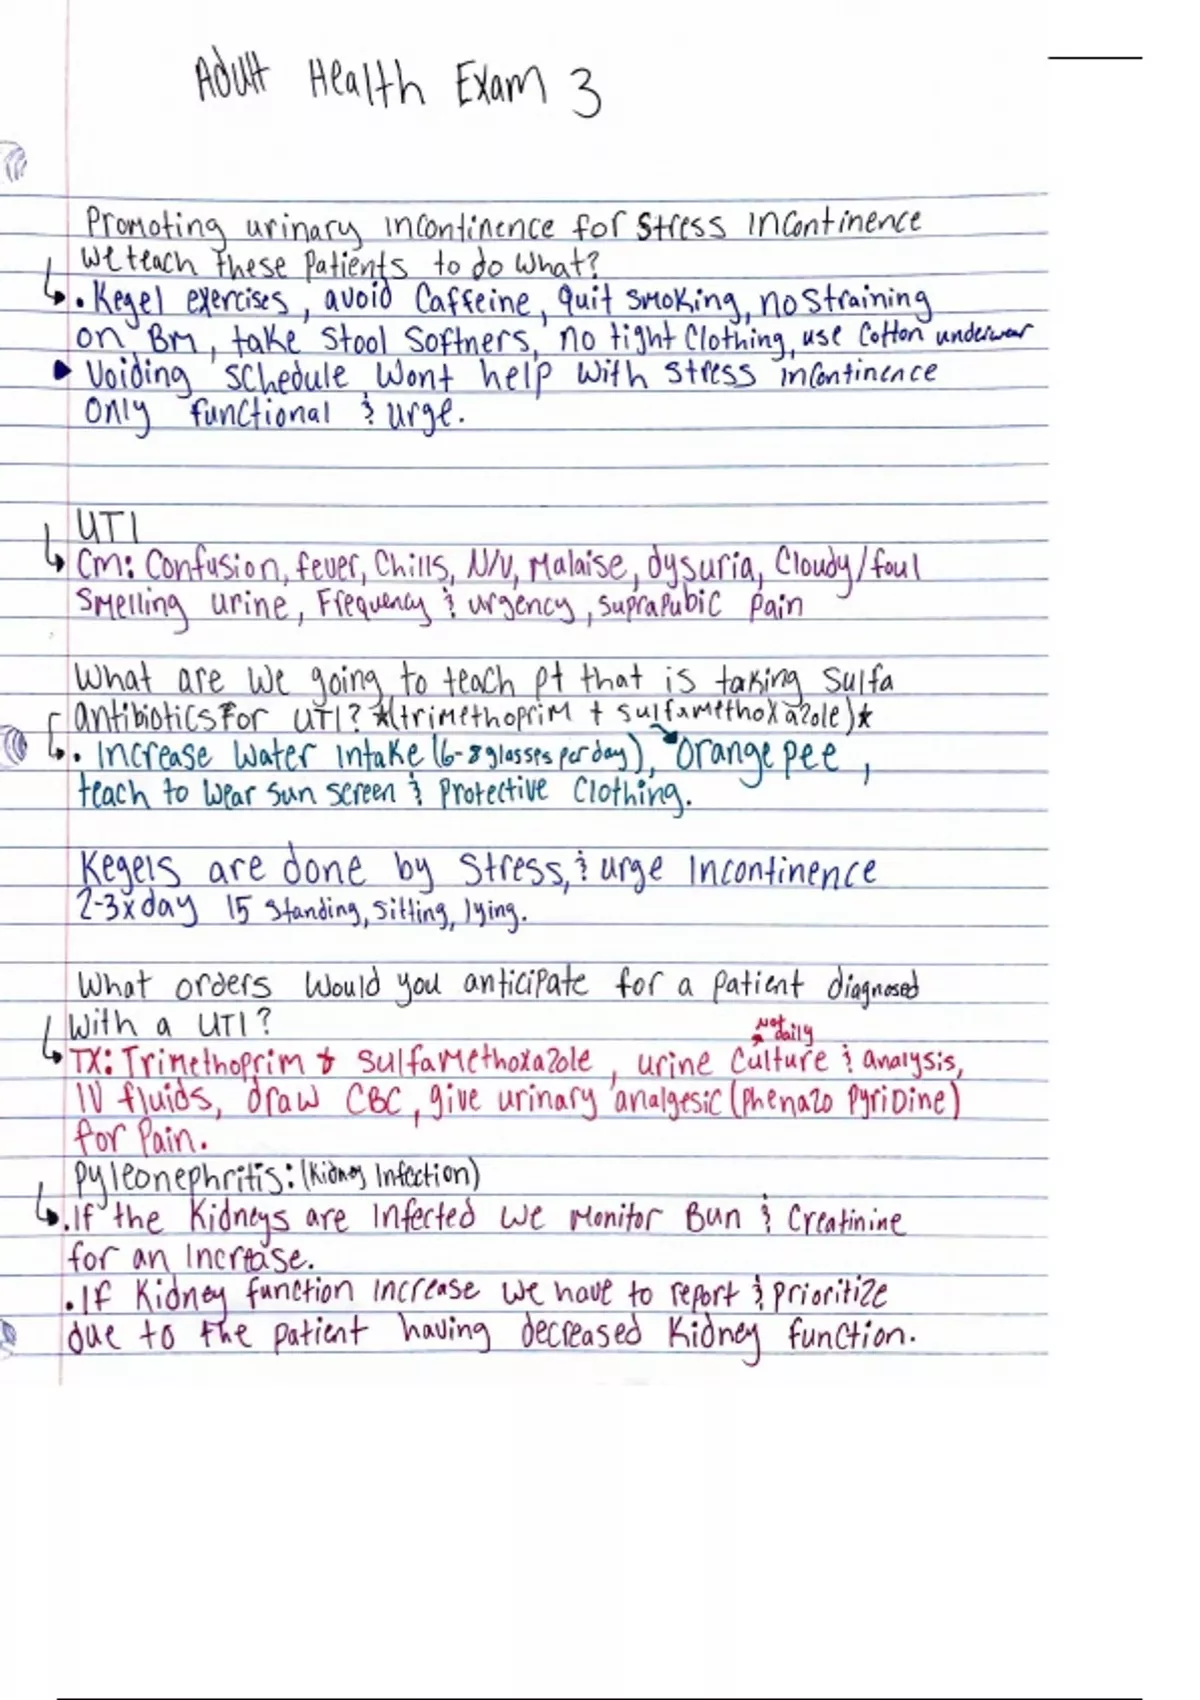 Adult Health Exam 3
Promoting urinary incontinence for stress incontinence
We teach these patients to do what?
• Kegel exercises, avoid Caffeine, quit smoking, no straining
on Bm, take stool softners, no tight clothing, use cotton underwear
Voiding schedule wont help with stress incontinence
only functional & urge.
UTI
Cm: Confusion, fever, chills, N/V, malaise, dysuria, cloudy/foul
smelling urine, frequency & urgency, suprapubic pain
What are we going to teach pt that is taking sulfa
antibiotics for UTI? *(trimethoprim + sulfamethoxazole)*
• Increase water intake (6-8 glasses per day), orange pee,
teach to wear sun screen & protective clothing.
Kegels are done by stress, & urge incontinence
2-3x day 15 standing, sitting, lying.
What orders would you anticipate for a patient diagnosed
with a UTI?
not daily
TX: Trimethoprim & sulfamethoxazole, urine culture & analysis,
IV fluids, draw CBC, give urinary analgesic (phenazo pyridine)
for pain.
Pyleonephritis: (Kidney Infection)
• If the kidneys are infected we monitor Bun & creatinine
for an increase.
• If kidney function increase we have to report & prioritize
due to the patient having decreased kidney function.